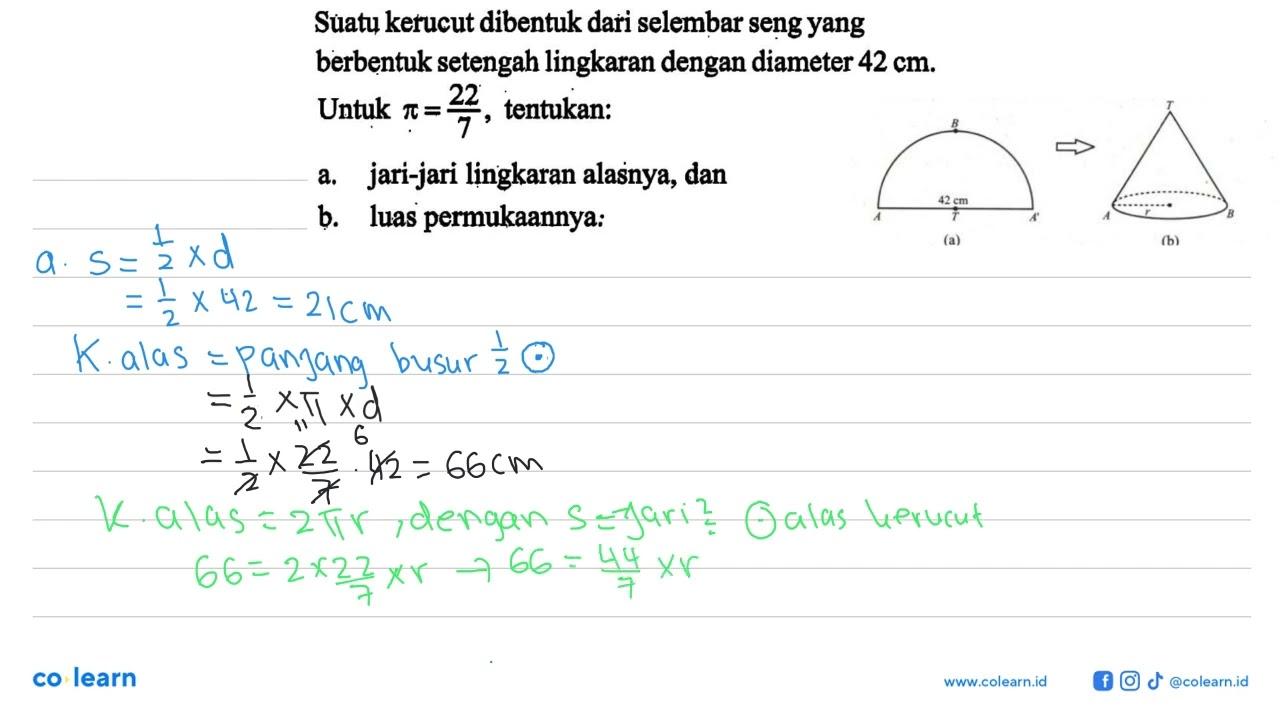 Suatu kerucut dibentuk dari selembar seng yang
berbentuk setengah lingkaran dengan diameter 42 cm.
Untuk π = 22/7, tentukan:
a. jari-jari lingkaran alasnya, dan
b. luas permukaannya.
B
42 cm
A T A'
(a)
T
A r B
(b)
a. s = 1/2 × d
= 1/2 × 42 = 21 cm
K. alas = panjang busur 1/2 ⊙
= 1/2 × π × d
11 6
= 1/2 × 22/7 . 42 = 66 cm
K. alas = 2πr, dengan s = jari² ⊙ alas kerucut
66 = 2 × 22/7 × r → 66 = 44/7 × r
co learn
www.colearn.id
@colearn.id